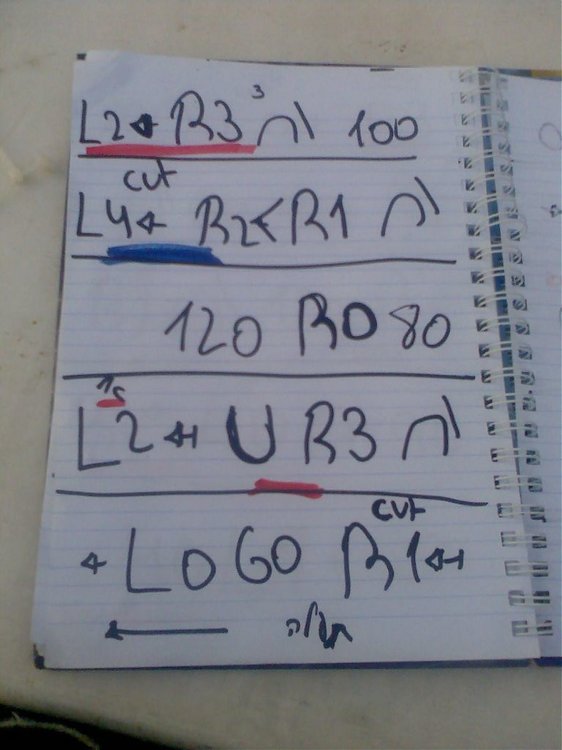 L2 ← R3 3 100
cut
L4 ← R2 < R1
120 R0 80
15
L2 ← U R3
cut
← L0 60 R1 ←
←